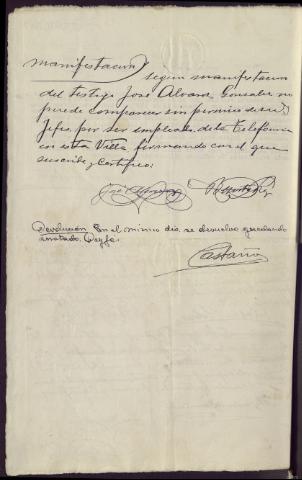 Manifestacion
según manifestacion
del testigo José Alvarez Gonzalez no
puede comparecer sin permiso de su
Jefe, por ser empleado de la Telefónica
en esta Villa, firmando con el que
suscribe, y Certifico:
José Alvarez
Devolución. En el mismo dia, se devuelve quedando
anotado. Doy fe.
Castaño